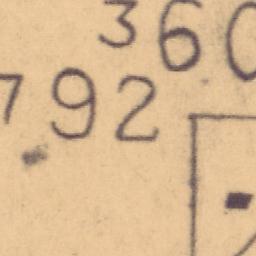 360
792